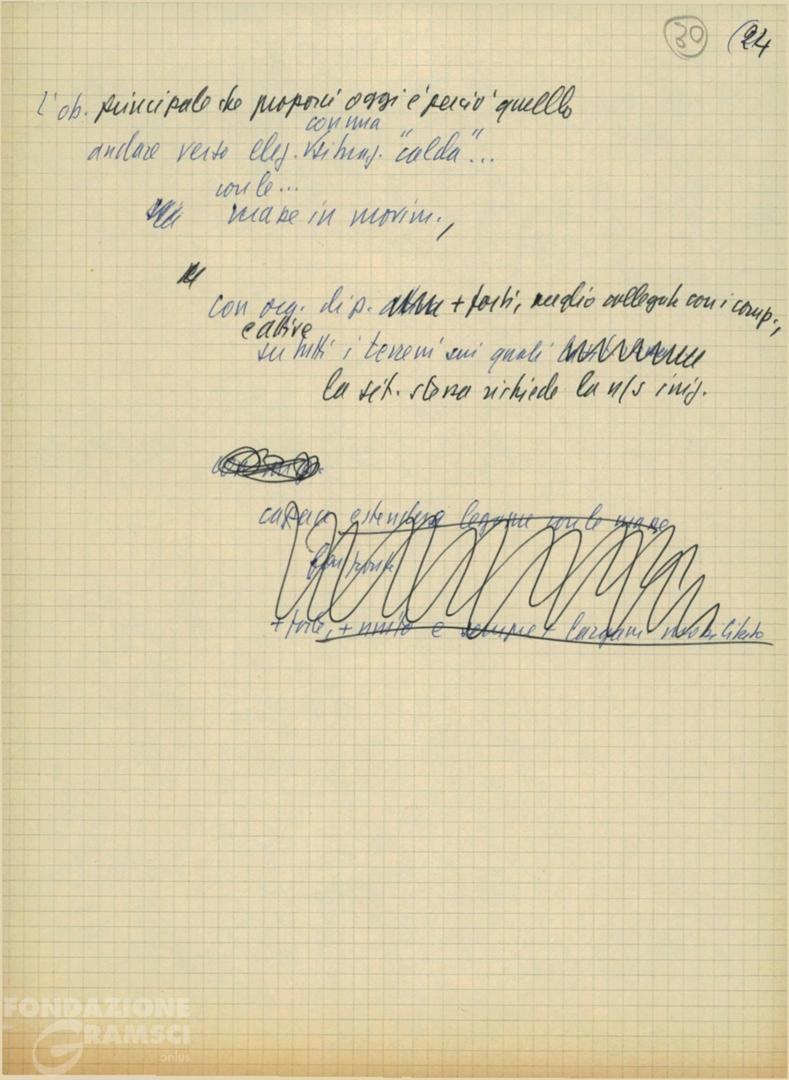 30 24
L'ob. principale che proporci oggi è perciò quello
con una
andare verso eleg. "calda"...
con le...
masse in movim.,
con org. di p. + forti, meglio collegate con i comp.,
e attive
su tutti i terreni sui quali
la sit. stessa richiede la n/s iniz.
estendere legame con le masse
+ forte, + unito e sempre + largam. mobilitato
FONDAZIONE
GRAMSCI
onlus